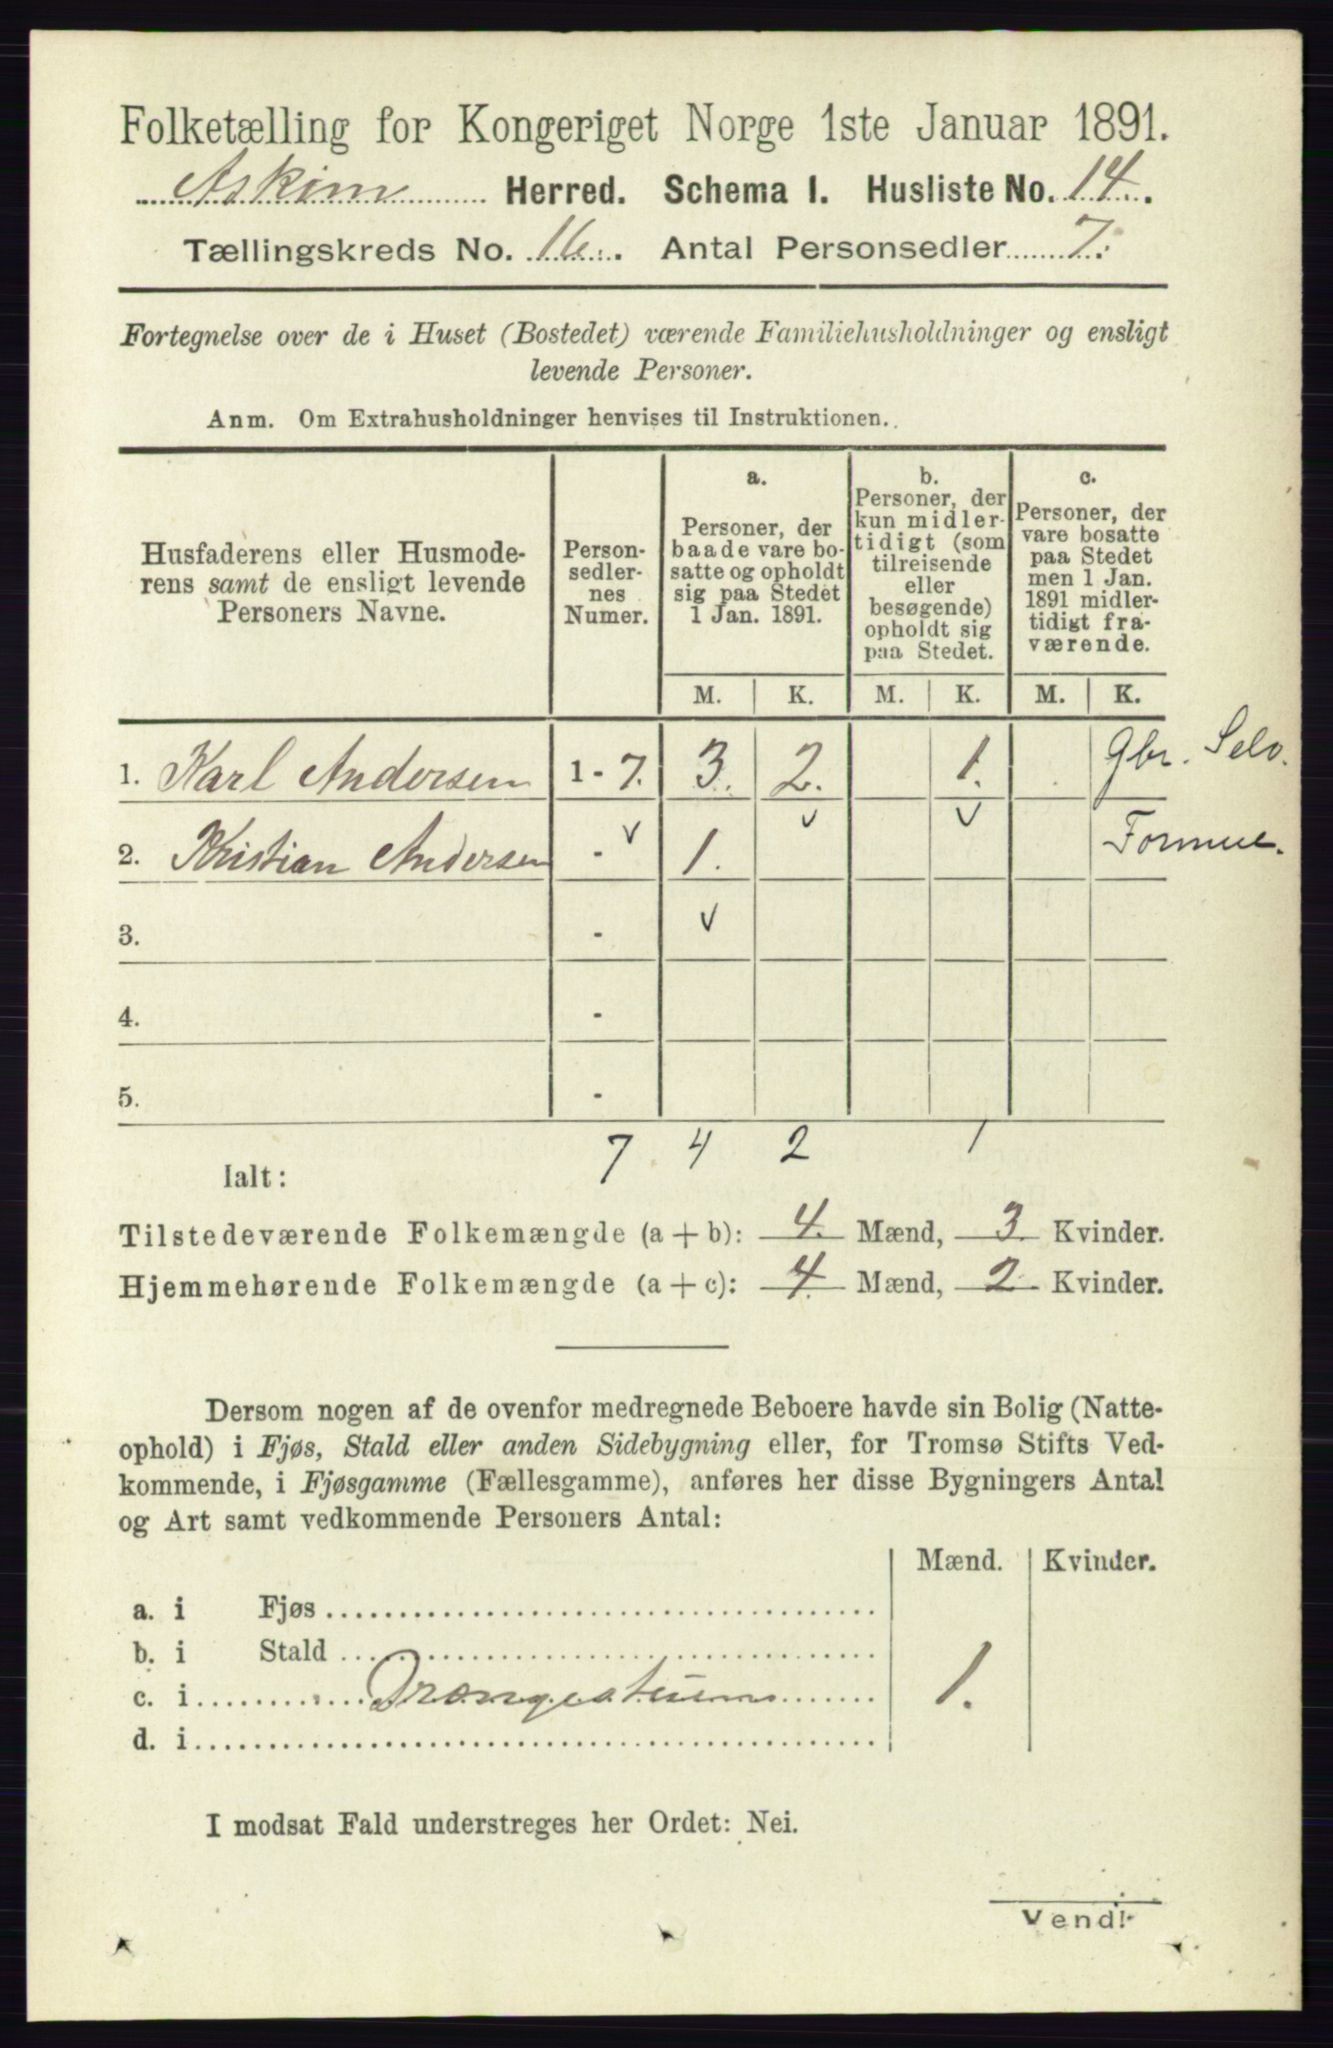 Folketælling for Kongeriget Norge 1ste Januar 1891.
Askim Herred. Schema 1. Husliste No. 14.
Tællingskreds No. 16. Antal Personsedler 7.
Fortegnelse over de i Huset (Bostedet) værende Familiehusholdninger og ensligt
levende Personer.
Anm. Om Extrahusholdninger henvises til Instruktionen.
Husfaderens eller Husmode-
rens samt de ensligt levende
Personers Navne.
Person-
sedler-
nes
Numer.
a.
Personer, der
baade vare bo-
satte og opholdt
sig paa Stedet
1 Jan. 1891.
b.
Personer, der
kun midler-
tidigt (som
tilreisende
eller
besøgende)
opholdt sig
paa Stedet.
c.
Personer, der
vare bosatte
paa Stedet
men 1 Jan.
1891 midler-
tidigt fra-
værende.
M. K. M. K. M. K.
1. Karl Andersen 1 - 7. 3. 2. 1. Gbr. Selv.
2. Kristian Andersen - 1. Formue.
3. -
4. -
5. -
7 4 2 1
Ialt:
Tilstedeværende Folkemængde (a + b): 4. Mænd, 3. Kvinder.
Hjemmehørende Folkemængde (a + c): 4. Mænd, 2. Kvinder.
Dersom nogen af de ovenfor medregnede Beboere havde sin Bolig (Natte-
ophold) i Fjøs, Stald eller anden Sidebygning eller, for Tromsø Stifts Ved-
kommende, i Fjøsgamme (Fællesgamme), anføres her disse Bygningers Antal
og Art samt vedkommende Personers Antal:
Mænd. Kvinder.
a. i Fjøs
b. i Stald
c. i 1.
d. i
I modsat Fald understreges her Ordet: Nei.
Vend!